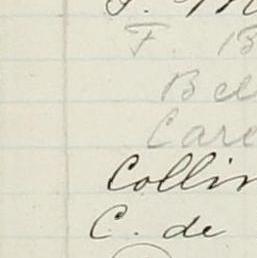 F. B
Bel
Care
Collin
C. de